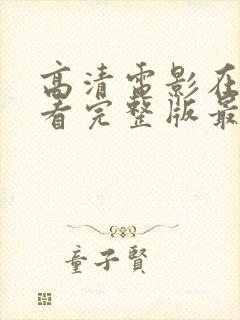 高清电影在
看完整版最
童子賢